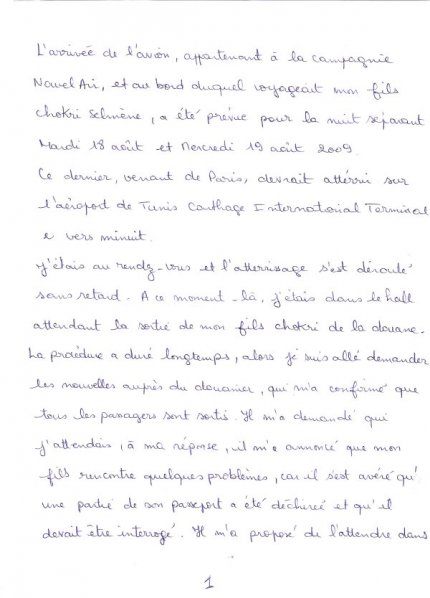 L'arrivée de l'avion, appartenant à la campagnie
Nouvel Air, et au bord duquel voyageait mon fils
chokri Selmène, a été prévue pour la nuit séparant
Mardi 18 août et Mercredi 19 août 2009.
Ce dernier, venant de Paris, devrait attérrir sur
l'aéroport de Tunis Carthage International Terminal
e vers minuit.
J'étais au rendez-vous et l'atterissage s'est déroulé
sans retard. A ce moment-là, j'étais dans le hall
attendant la sortie de mon fils chokri de la douane.
La procédure a duré longtemps, alors je suis allé demander
les nouvelles auprès du douanier, qui m'a confirmé que
tous les passagers sont sortis. Il m'a demandé qui
j'attendais, à ma réponse, il m'a annoncé que mon
fils rencontre quelques problèmes, car il s'est avéré qu'
une partie de son passeport a été déchirée et qu'il
devait être interrogé. Il m'a proposé de l'attendre dans
1